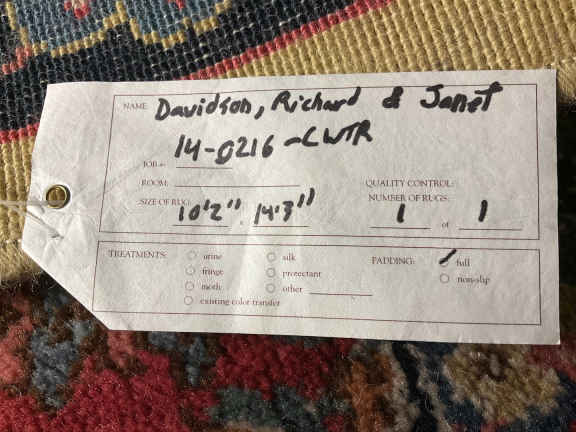 NAME: Davidson, Richard & Janet
JOB #: 14-0216-CWTR
ROOM:
QUALITY CONTROL:
SIZE OF RUG: 10'2" . 14'3"
NUMBER OF RUGS: 1 of 1
TREATMENTS: urine silk PADDING: full
fringe protectant non-slip
moth other
existing color transfer